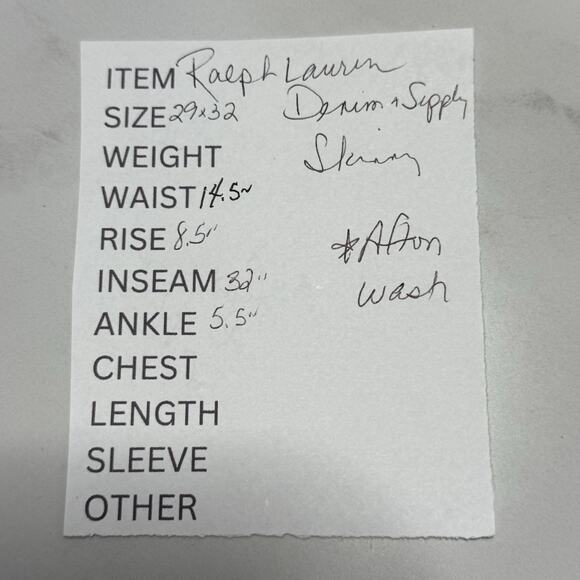 ITEM Ralph Lauren
SIZE 29x32 Denim + Supply
WEIGHT Skinny
WAIST 14.5"
RISE 8.5" *Afton
INSEAM 32" wash
ANKLE 5.5"
CHEST
LENGTH
SLEEVE
OTHER